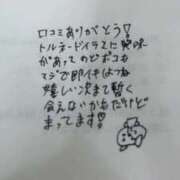 口コミありがとう!
トルネードイラマに興味
があってのどボコも
マジで即イキはつね
嬉しい次まで暫く
会えないかもだけど
まってます!